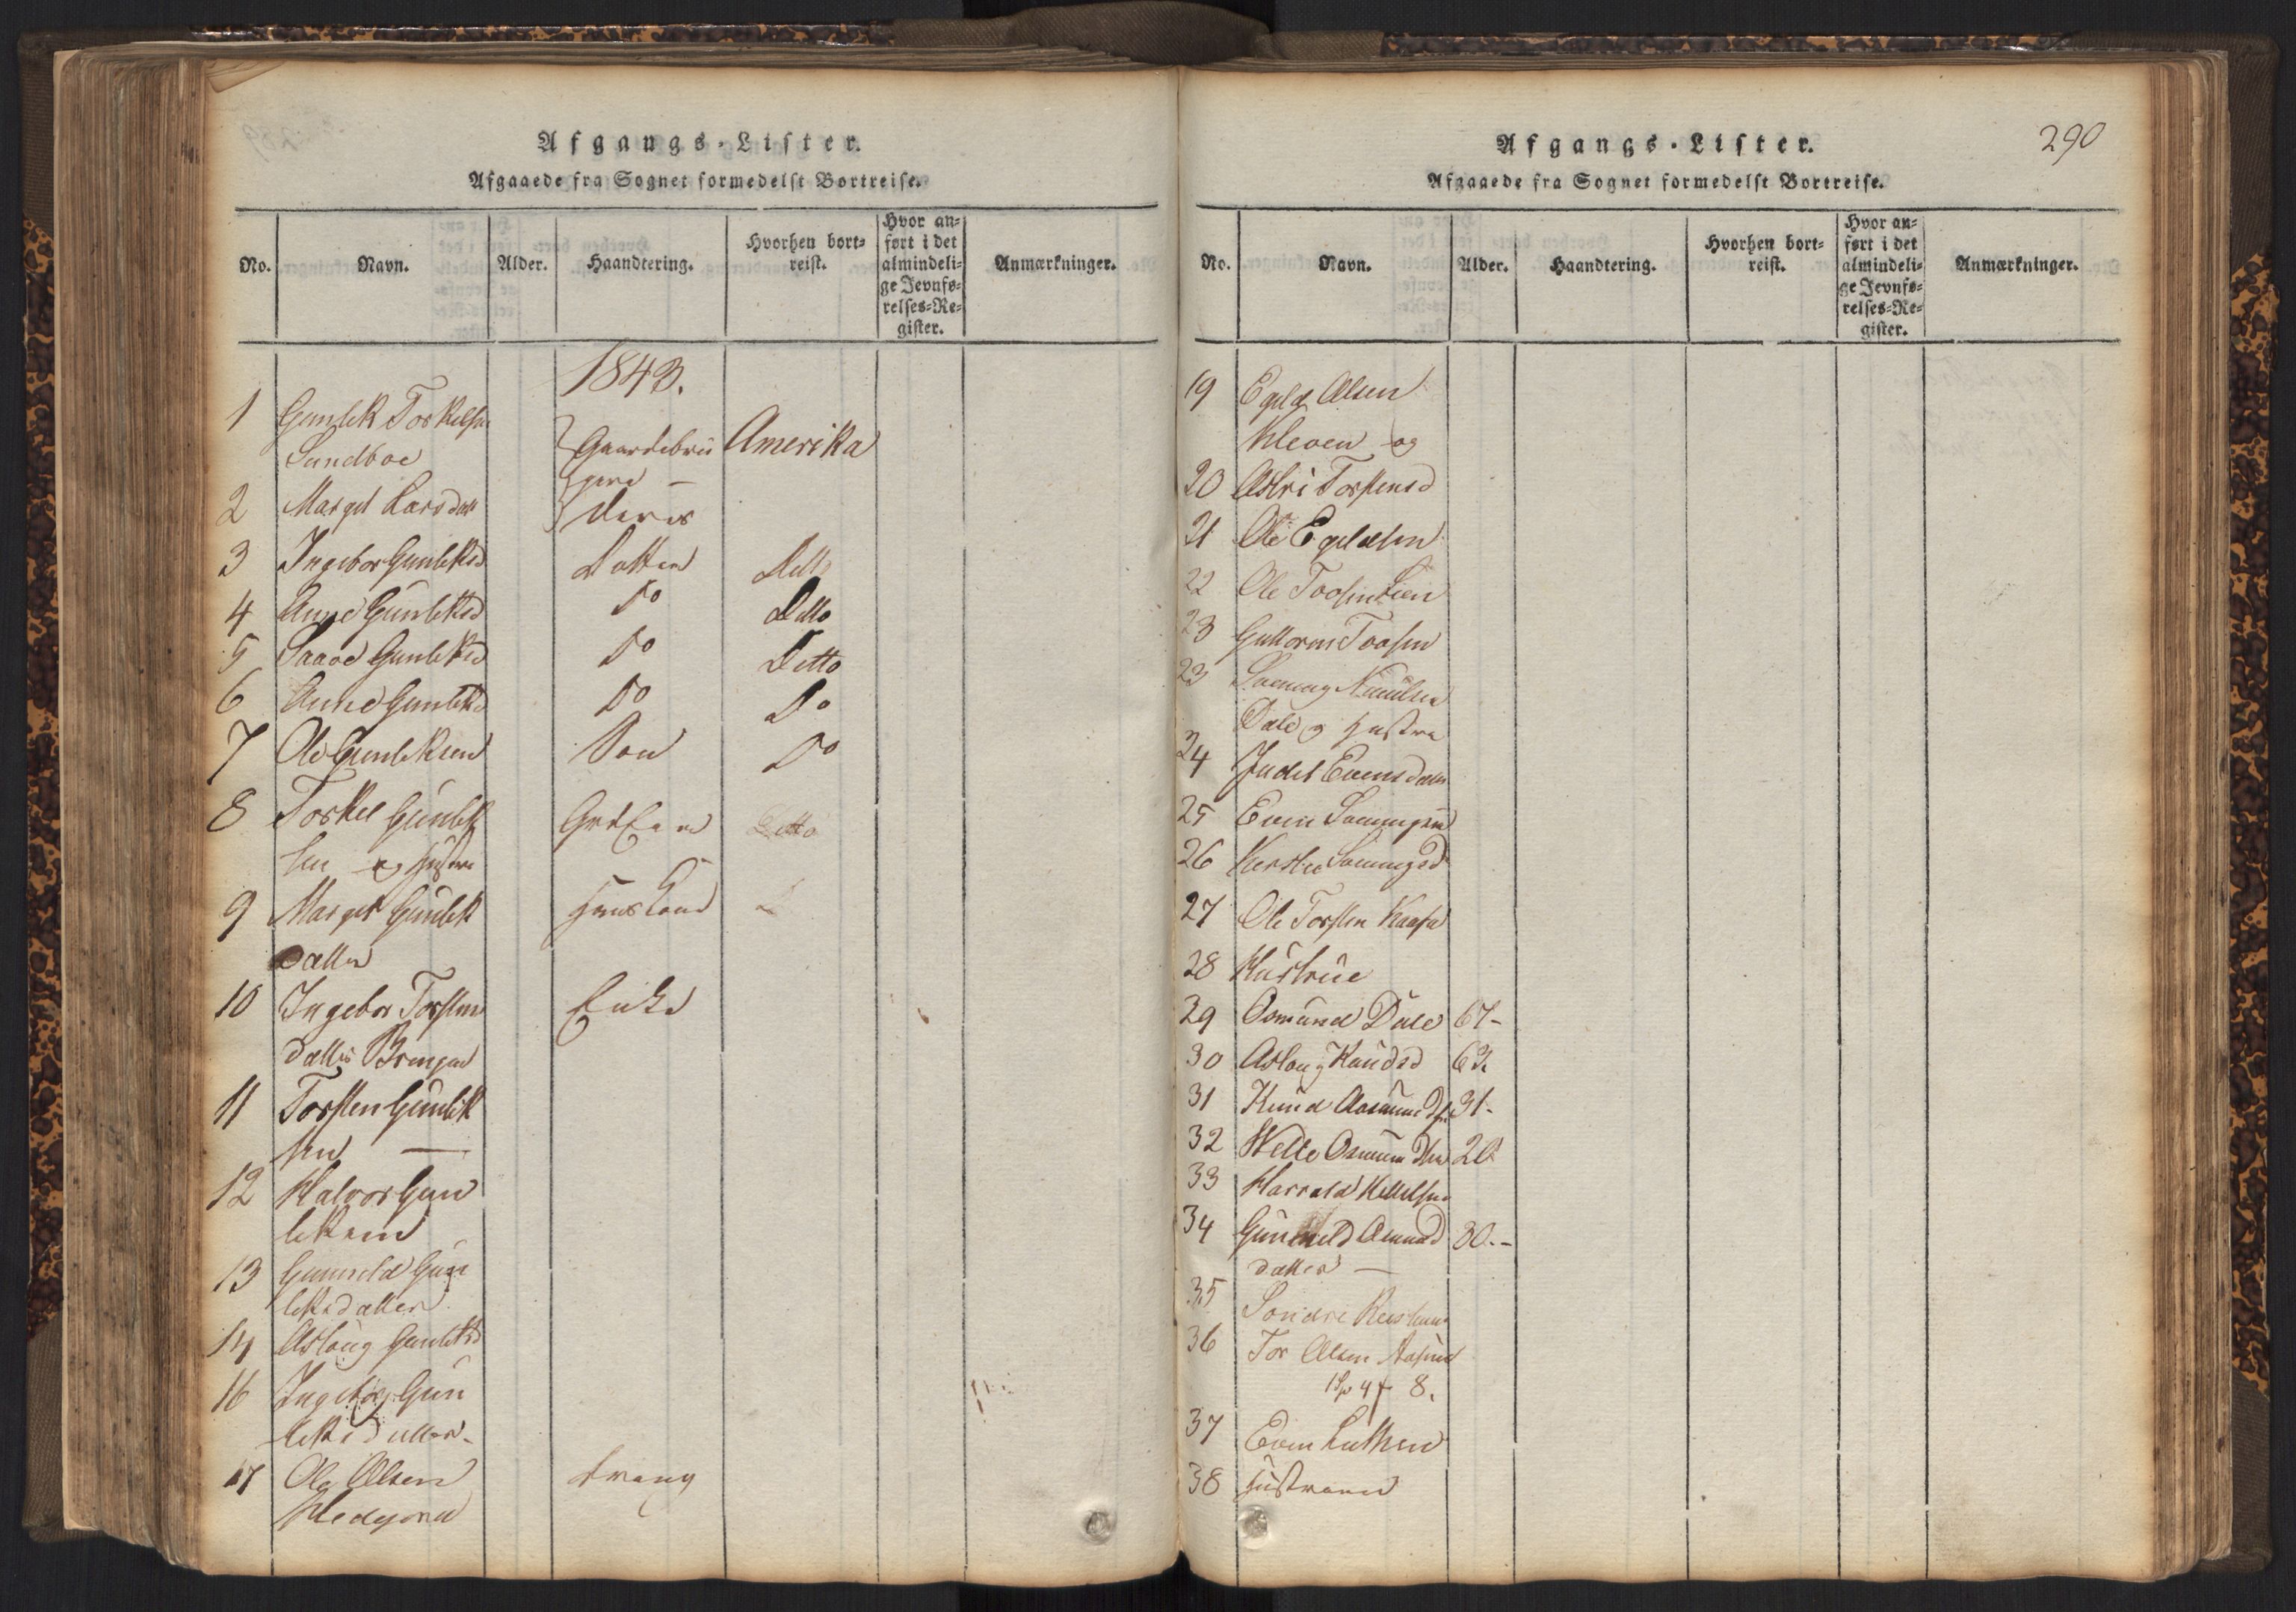 Afgangs-Lister.
Afgaaede fra Sognet formedelst Bortreise.
No.
Navn.
Alder.
Haandtering.
Hvorhen bort-
reist.
Hvor an-
ført i det
almindeli-
ge Jevnfø-
relses-Re-
gister.
Anmærkninger.
1843.
1 Gunlek Torkelsen
Sundboe Gaardebru Amerika
gere —
2 Margit Larsdatt deres
3 Ingebor Gunleksd Datter Ditto
4 Anne Gunleksd Do Ditto
5 Gunleksd Do Ditto
6 Anne Gunleksd Do Do
7 Ole Gunleksen Søn Do
8 Torkel Gunlek Ditto
sen og Hustru
9 Margit Gunlek
datter
10 Ingebor Torsten Enke
datter
11 Torsten Gunlek
sen —
12 Halvor Gun
leksen
13 Gunild Gun
leksdatter
14 Aslaug Gunleksd
16 Ingeborg Gun
leksdatter
17 Ole Olsen dreng
290
Afgangs-Lister.
Afgaaede fra Sognet formedelst Bortreise.
No.
Navn.
Alder.
Haandtering.
Hvorhen bort-
reist.
Hvor an-
ført i det
almindeli-
ge Jevnfø-
relses-Re-
gister.
Anmærkninger.
19 Egild Olsen
Kleven og
20 Astri Torstensd
21 Ole Egildsen
22 Ole
23 Guttorm
23
Dale og Hustru
24 Judet Evensdatter
25 Even
26
27 Ole Torsten Kaasa
28 Hustrue
29 Osmund Dale 67-
30 Aslaug Knudsd 63.
31 Knud Aasmundsen 31-
32 Osmundsen
33 Harrald Kittelsen
34 Gunhild 30.-
datter —
35 Sondre
36 Tor Olsen
8.
37 Even
38 Hustruen